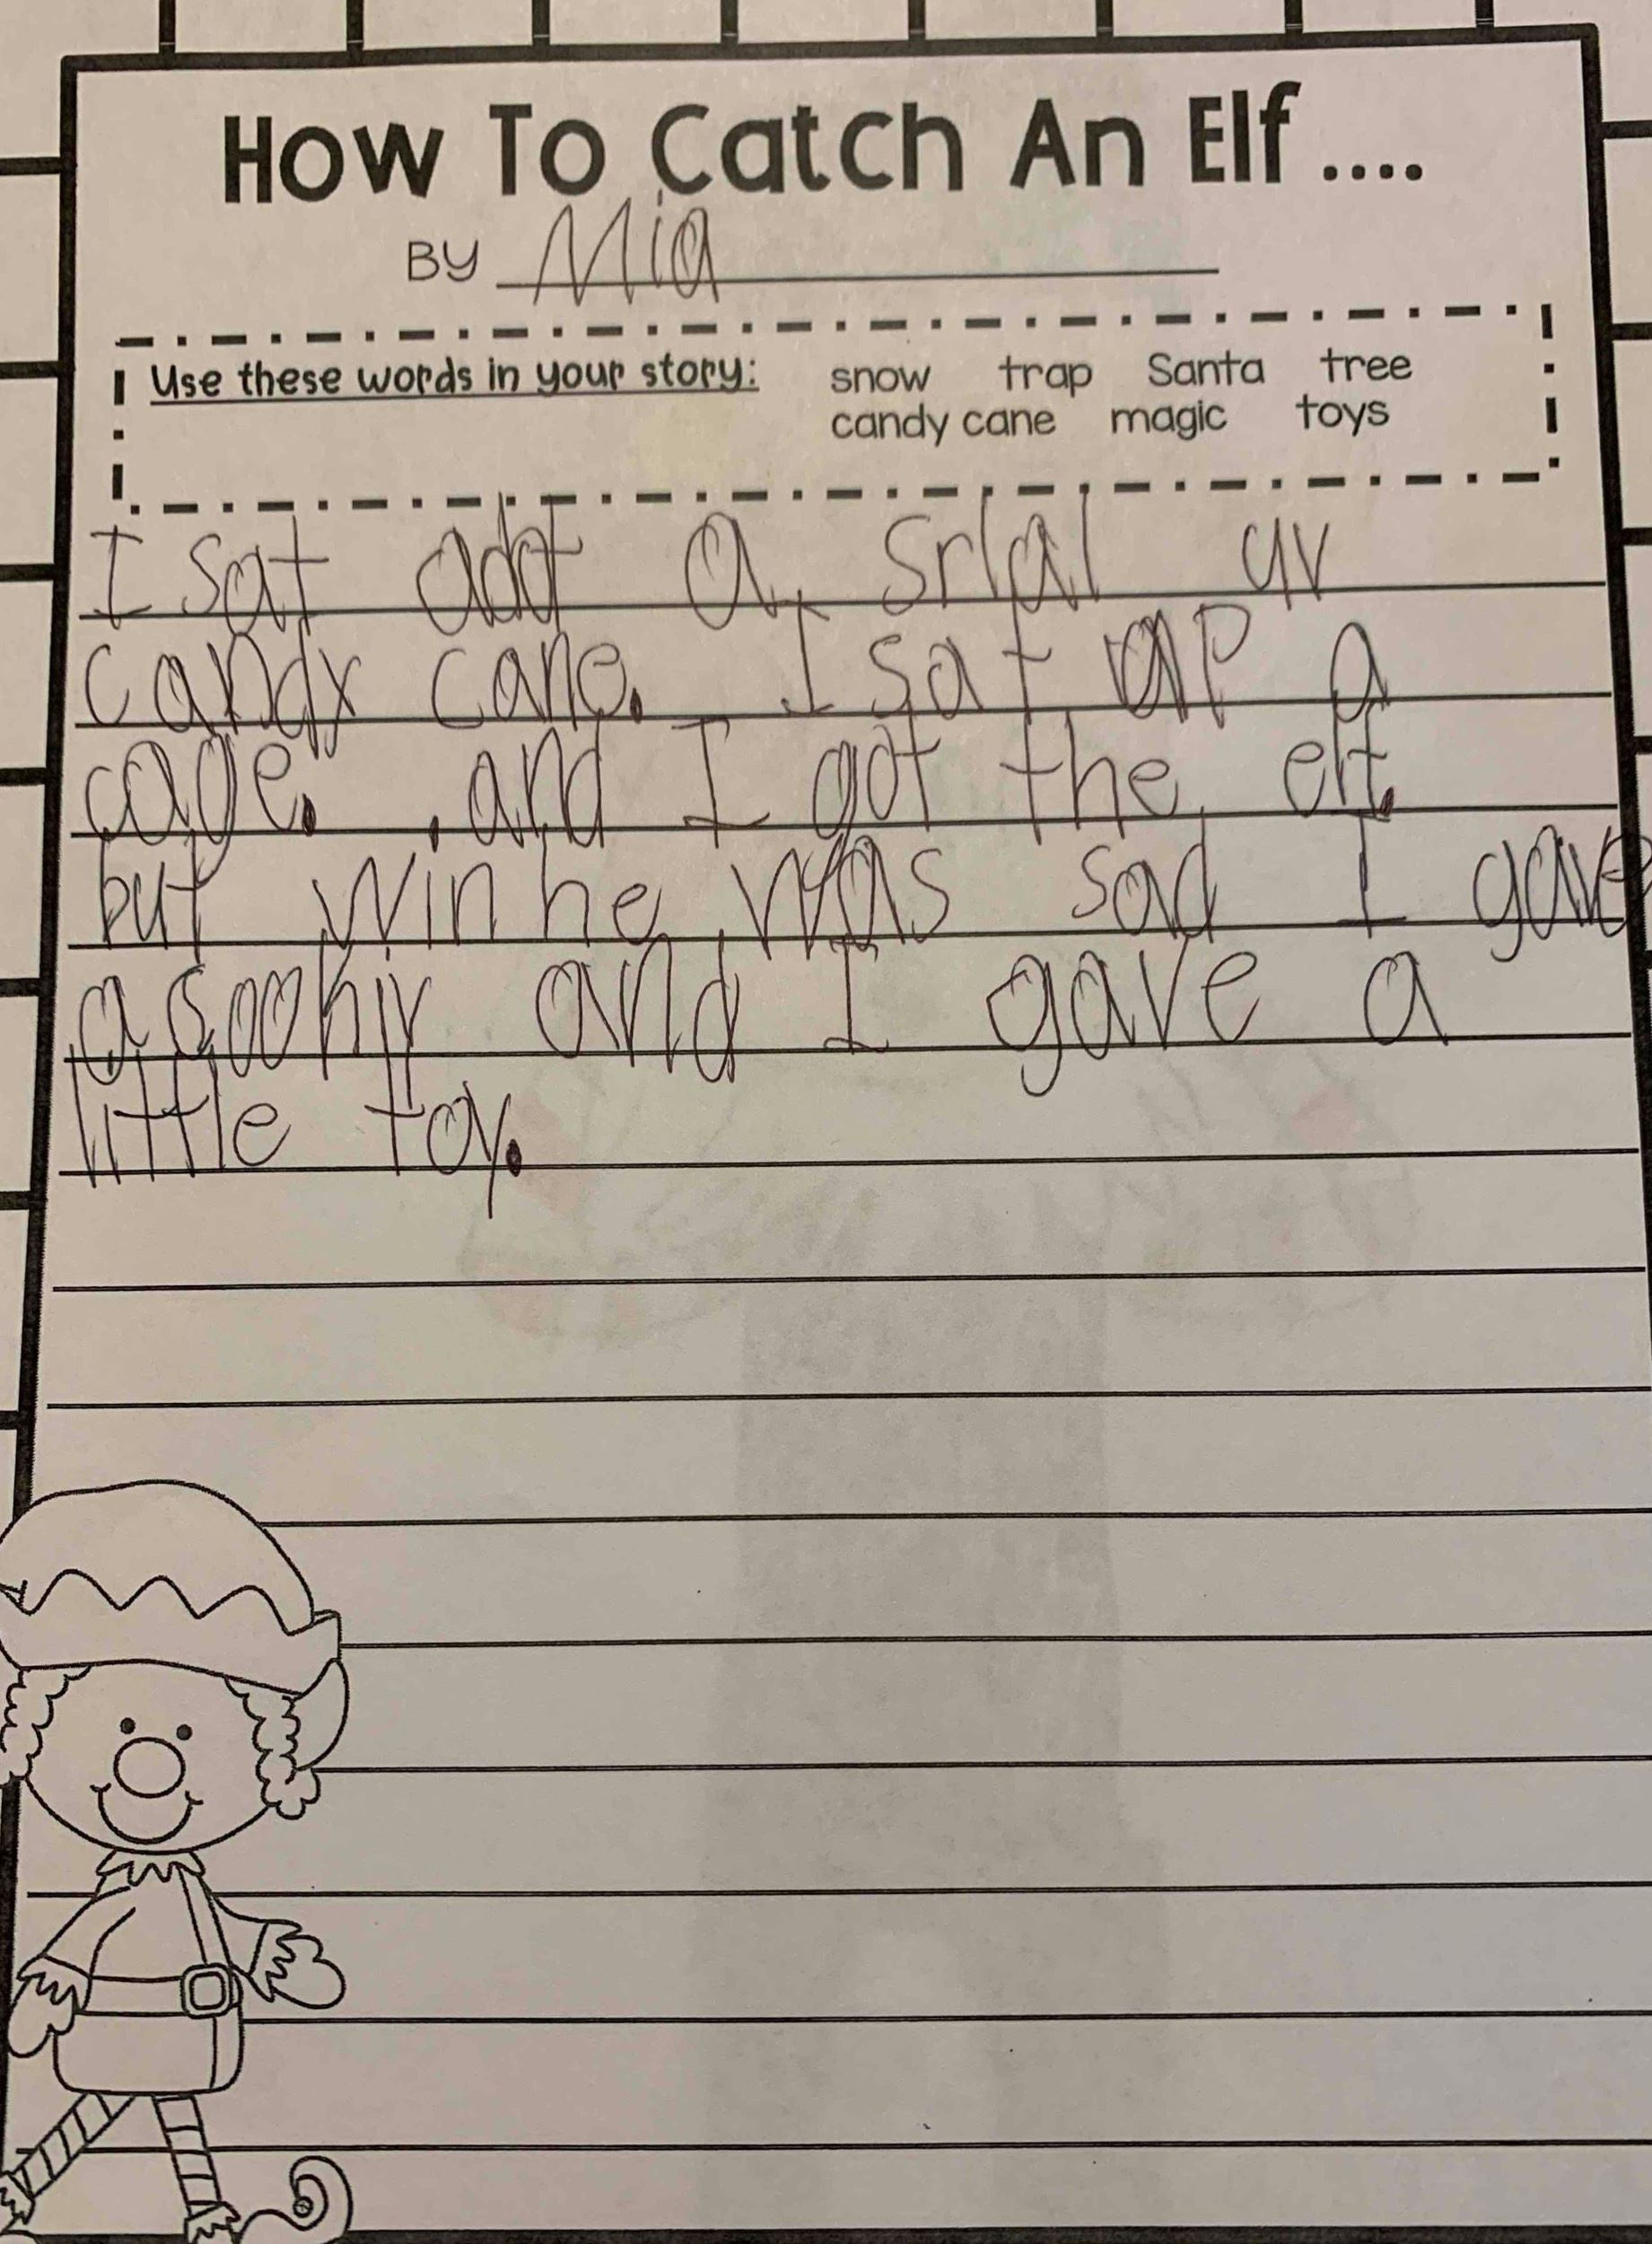 How To Catch An Elf ....
BY Mia
Use these words in your story: snow trap Santa tree
candy cane magic toys
I sat adot a srlal uv
candy cane. I sat ap a
cage. and I got the elf.
but win he was sad I gave
a coohiy and I gave a
little toy.